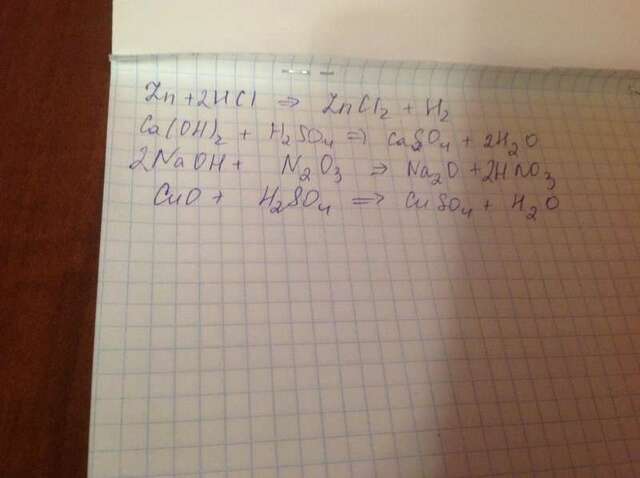 Zn + 2HCl ⇒ ZnCl₂ + H₂
Ca(OH)₂ + H₂SO₄ ⇒ CaSO₄ + 2H₂O
2NaOH + N₂O₃ ⇒ Na₂O + 2HNO₃
CuO + H₂SO₄ ⇒ CuSO₄ + H₂O